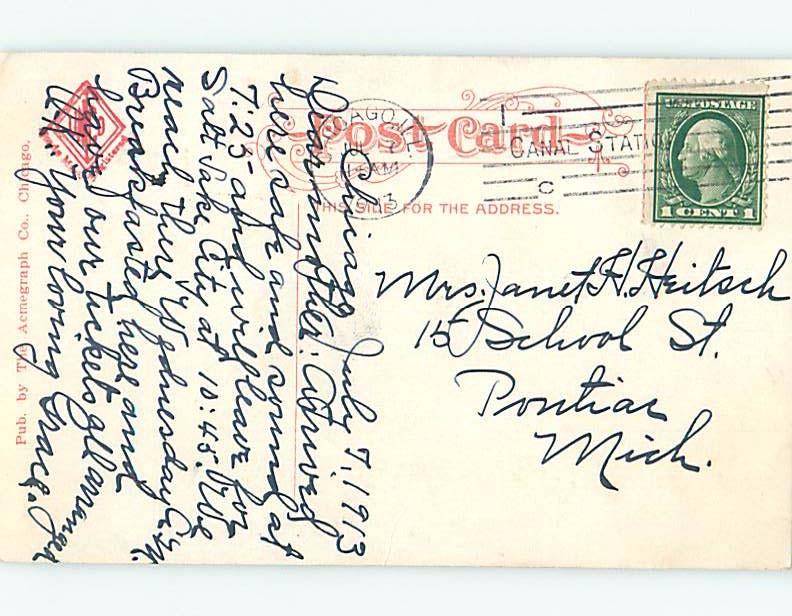 Chicago July 7, 1913
Dear mother: Arrived
here safe and sound at
7:25 and will leave for
Salt Lake City at 10:45. We
reach there Wednesday P.M.
Breakfasted here and
have our tickets all arranged
of. Your loving Grace.
Post Card
THIS SIDE FOR THE ADDRESS.
CHICAGO, ILL.
JUL 7
AM
1913
CANAL STATION
C
U.S. POSTAGE
1 CENT 1
Mrs. Janet H. Heitsch
15 School St.
Pontiac
Mich.
Pub. by The Acmegraph Co., Chicago.